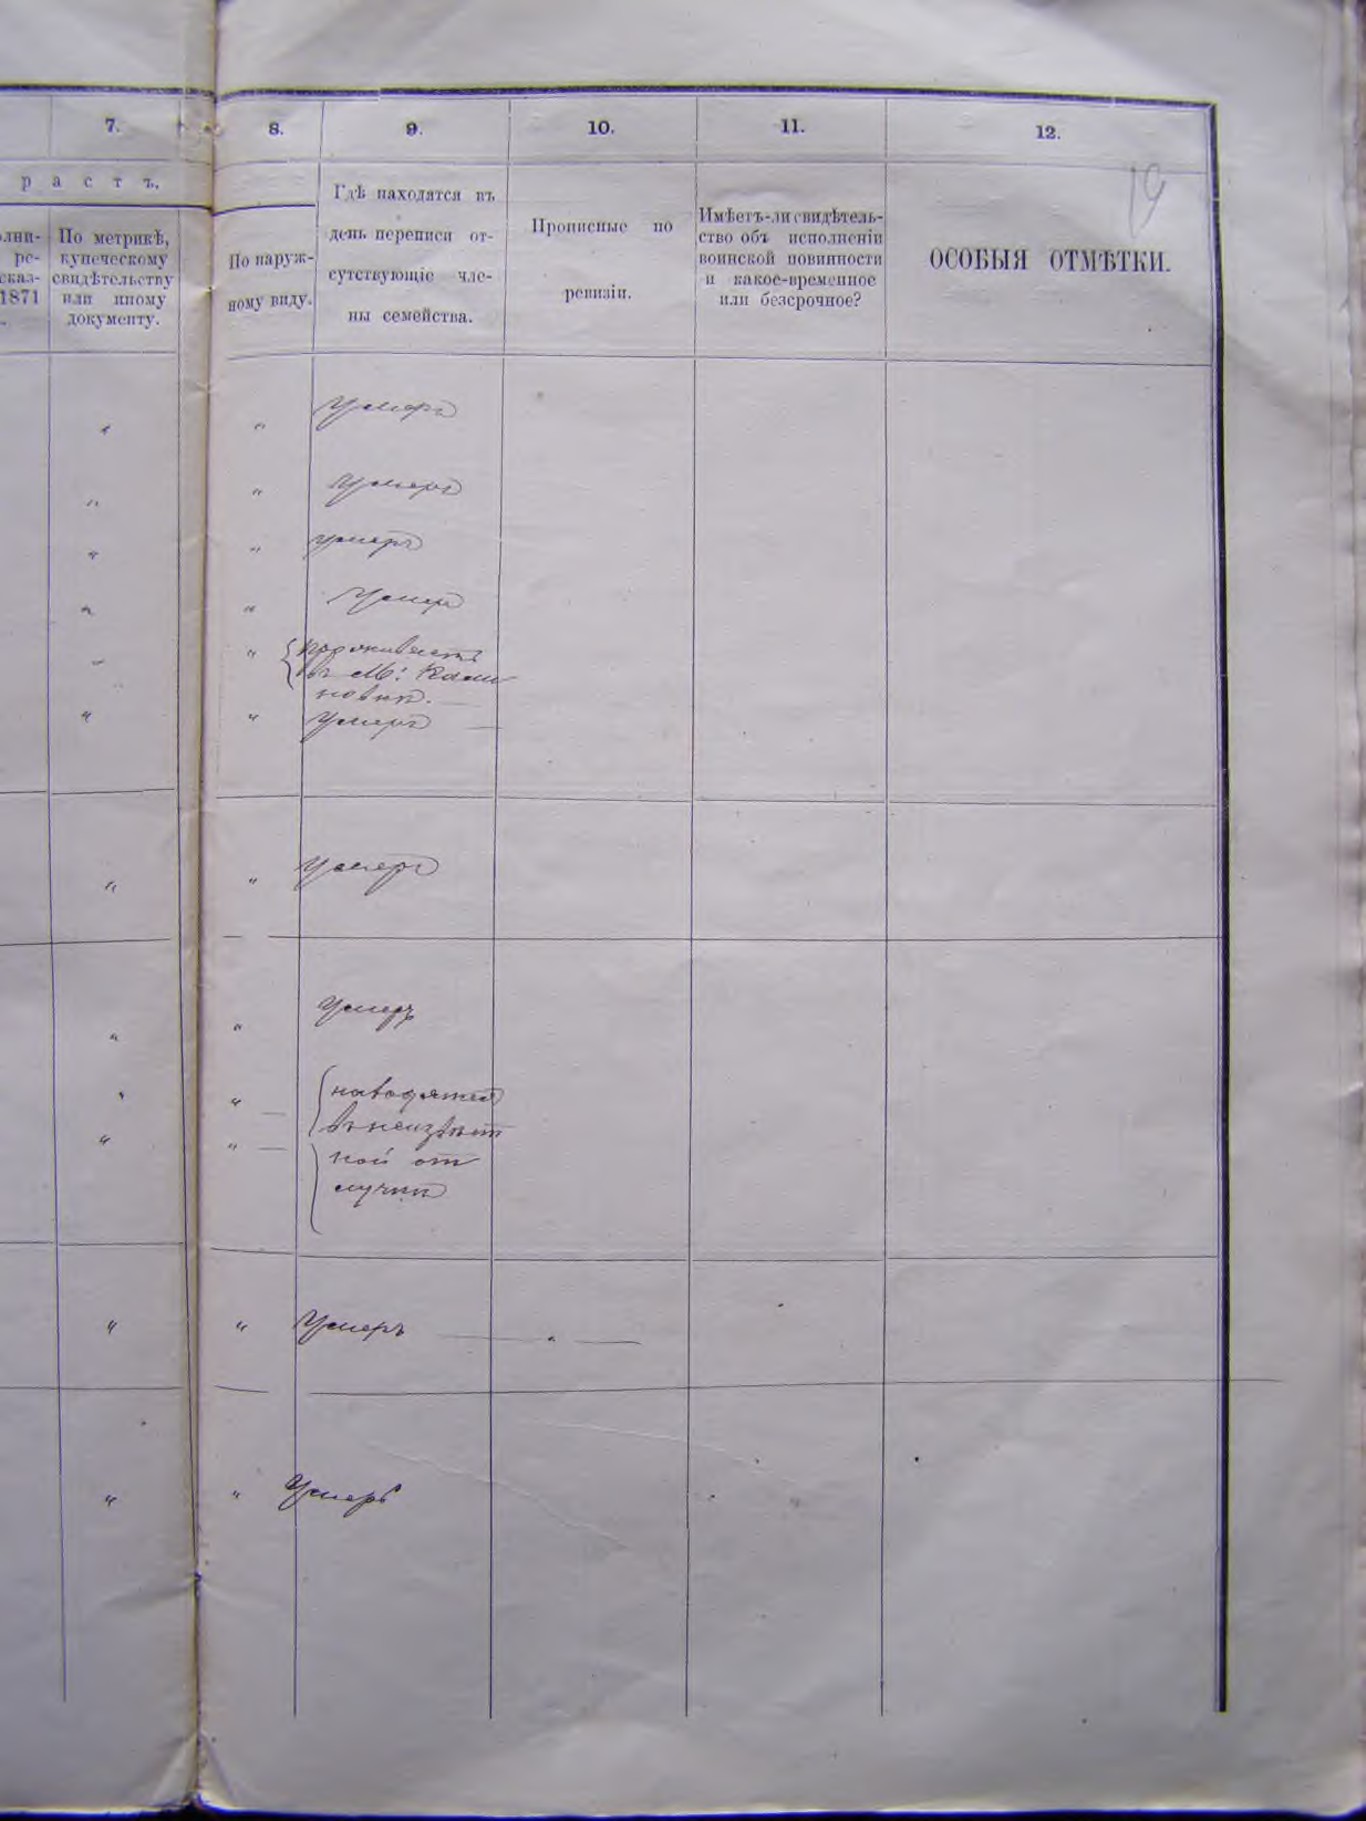 7. 8. 9. 10. 11. 12.
19
р а с т ъ.
По метрикѣ,
купеческому
свидѣтельству
или иному
документу.
лни-
ре-
сказ-
1871
По наруж-
ному виду.
Гдѣ находятся въ
день переписи от-
сутствующіе чле-
ны семейства.
Прописные по
ревизіи.
Имѣетъ-ли свидѣтель-
ство объ исполненіи
воинской повинности
и какое-временное
или безсрочное?
ОСОБЫЯ ОТМѢТКИ.
" " Умеръ
" " Умеръ
" " умеръ
" " Умеръ
" " проживаетъ
въ М:
" " Умеръ
" " Умеръ
" " Умеръ
" " находятся
" " въ неизвѣст
ной от
лучки
" " Умеръ
" " Умеръ